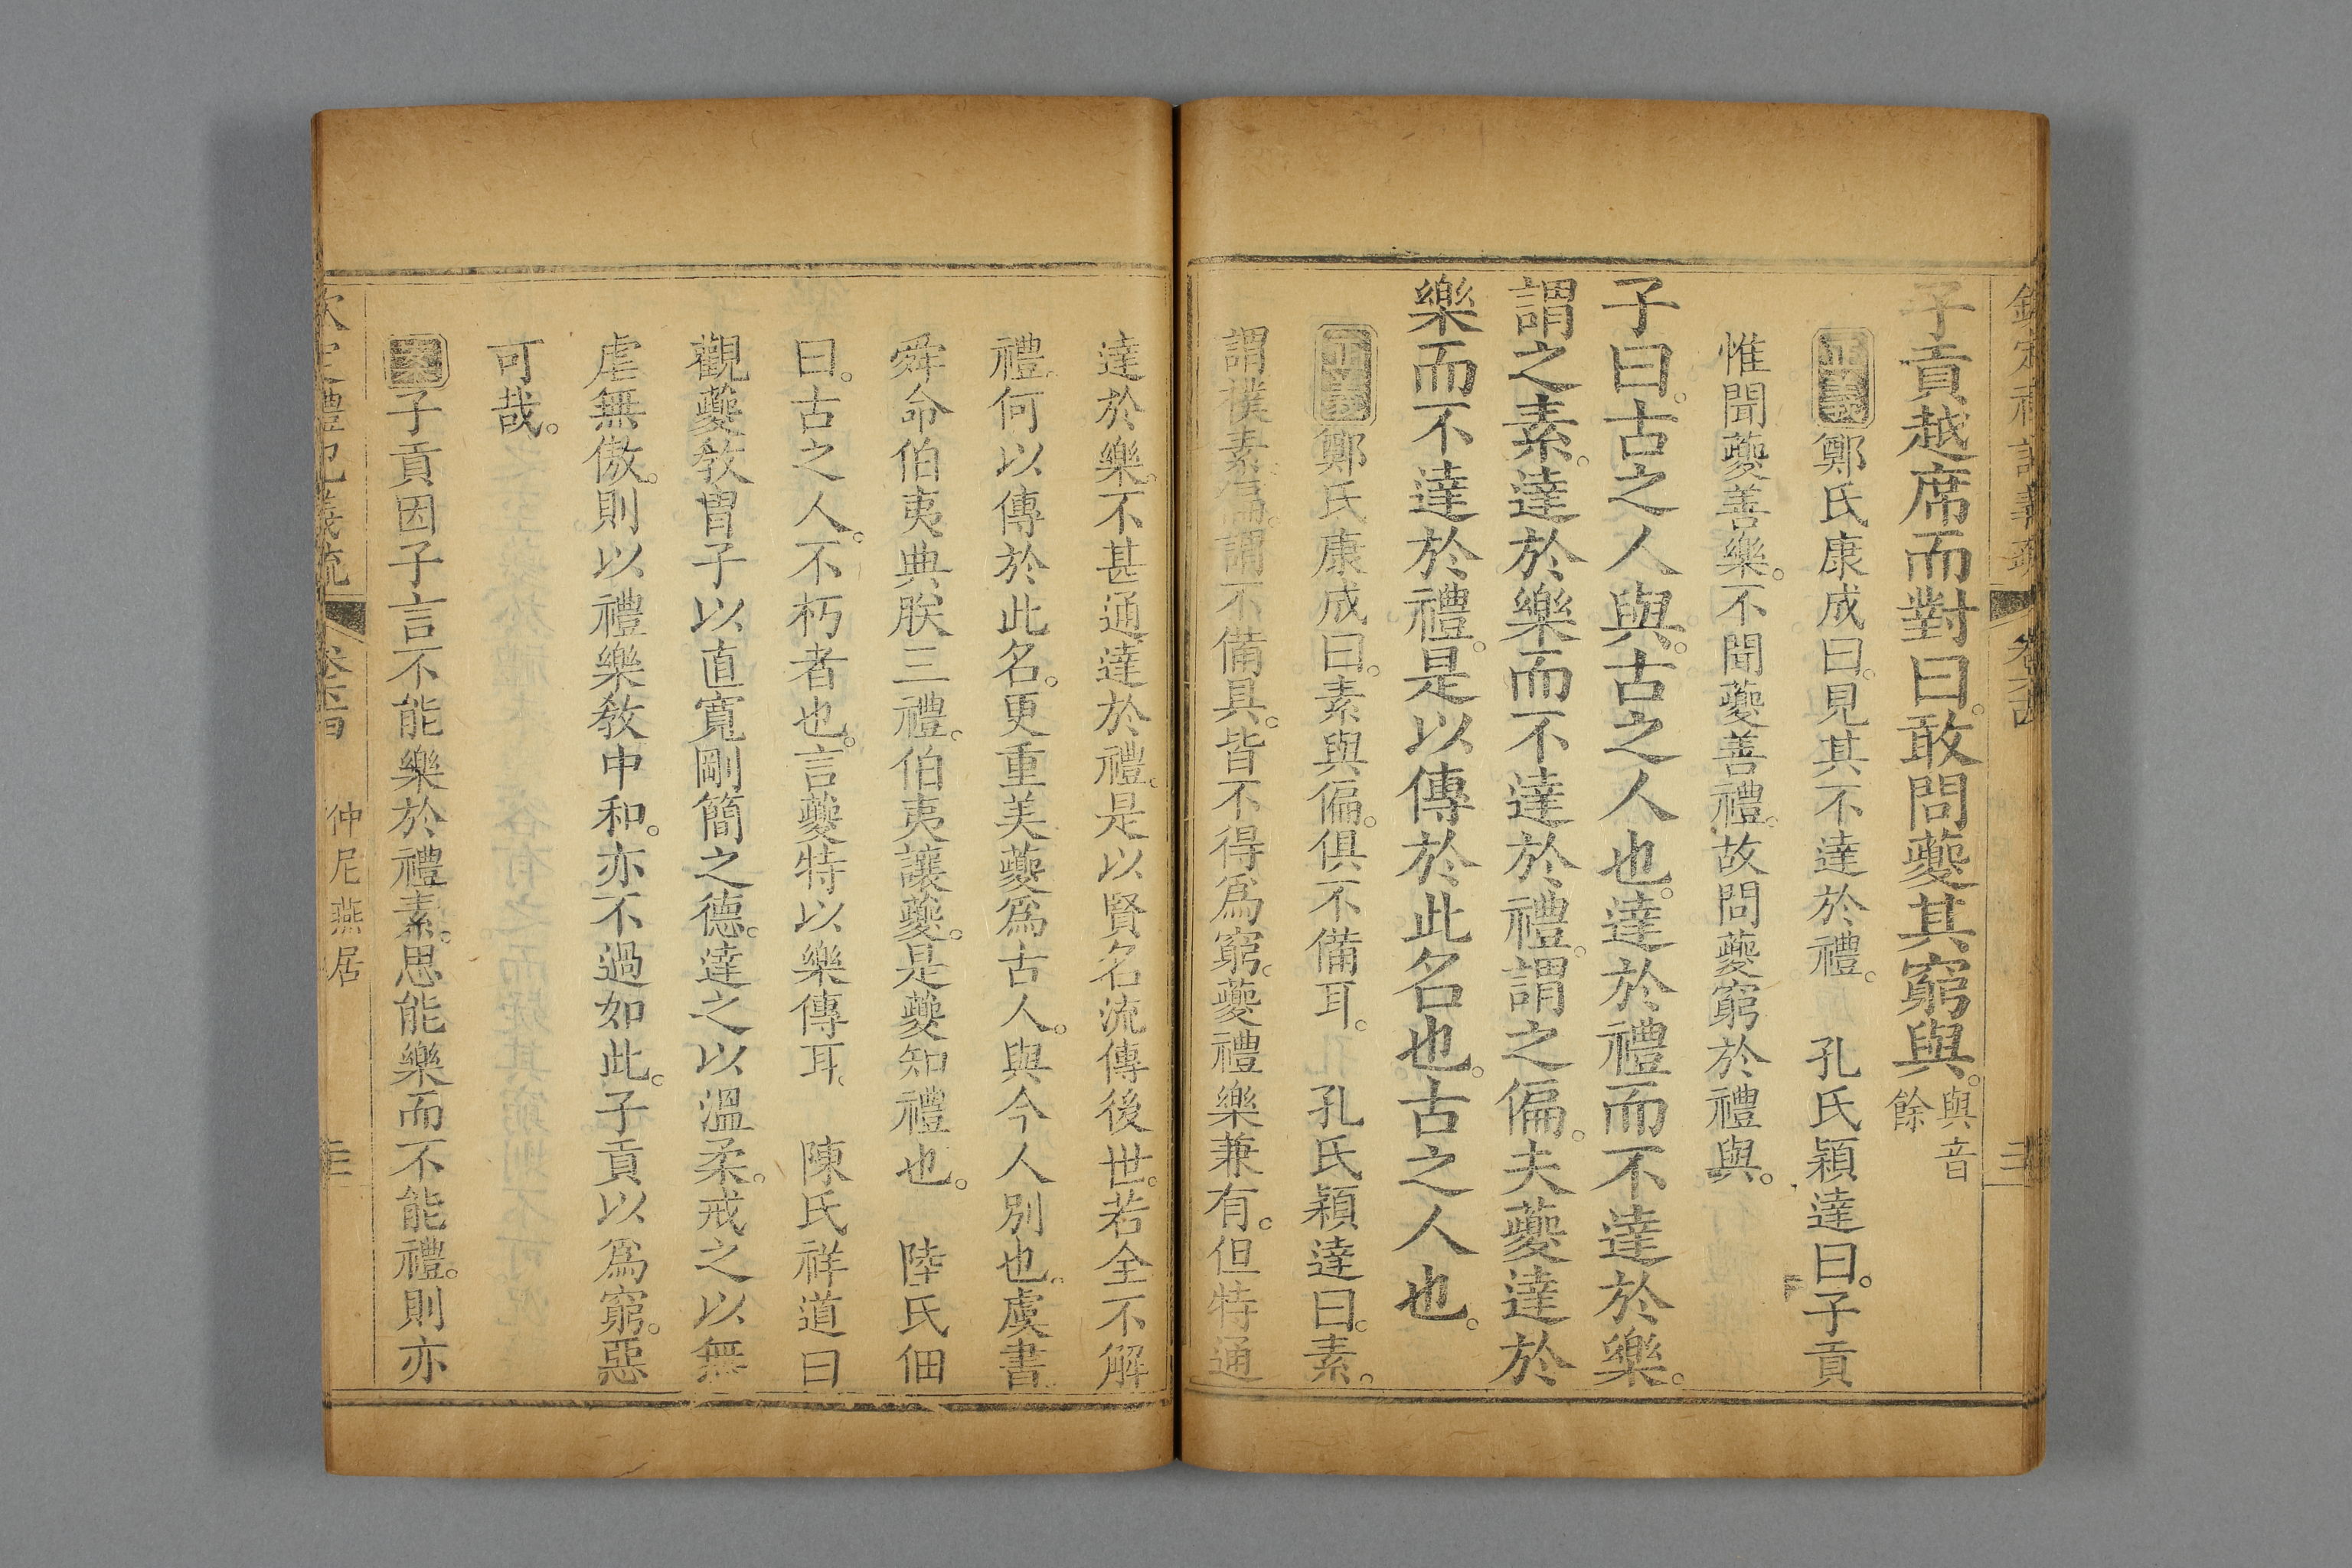 欽定禮記義疏 卷
子貢越席而對曰。敢問夔其窮與。與音餘
正義鄭氏康成曰。見其不達於禮。 孔氏穎達曰。子貢
惟聞夔善樂。不聞夔善禮。故問夔窮於禮與。
子曰。古之人與。古之人也。達於禮而不達於樂。
謂之素。達於樂而不達於禮。謂之偏。夫夔達於
樂而不達於禮。是以傳於此名也。古之人也。
正義鄭氏康成曰。素與偏。俱不備耳。 孔氏穎達曰。素。
謂樸素。偏。謂不備具。皆不得爲窮。夔禮樂兼有。但特通
達於樂。不甚通達於禮。是以賢名流傳後世。若全不解
禮。何以傳於此名。更重美夔爲古人。與今人別也。虞書
舜命伯夷典朕三禮。伯夷讓夔。是夔知禮也。 陸氏佃
曰。古之人。不朽者也。言夔特以樂傳耳。 陳氏祥道曰
觀夔敎冑子以直寬剛簡之德。達之以溫柔。戒之以無
虐無傲。則以禮樂敎中和。亦不過如此。子貢以爲窮。惡
可哉。
案子貢因子言不能樂於禮素。思能樂而不能禮。則亦
欽定禮記義疏 卷 仲尼燕居